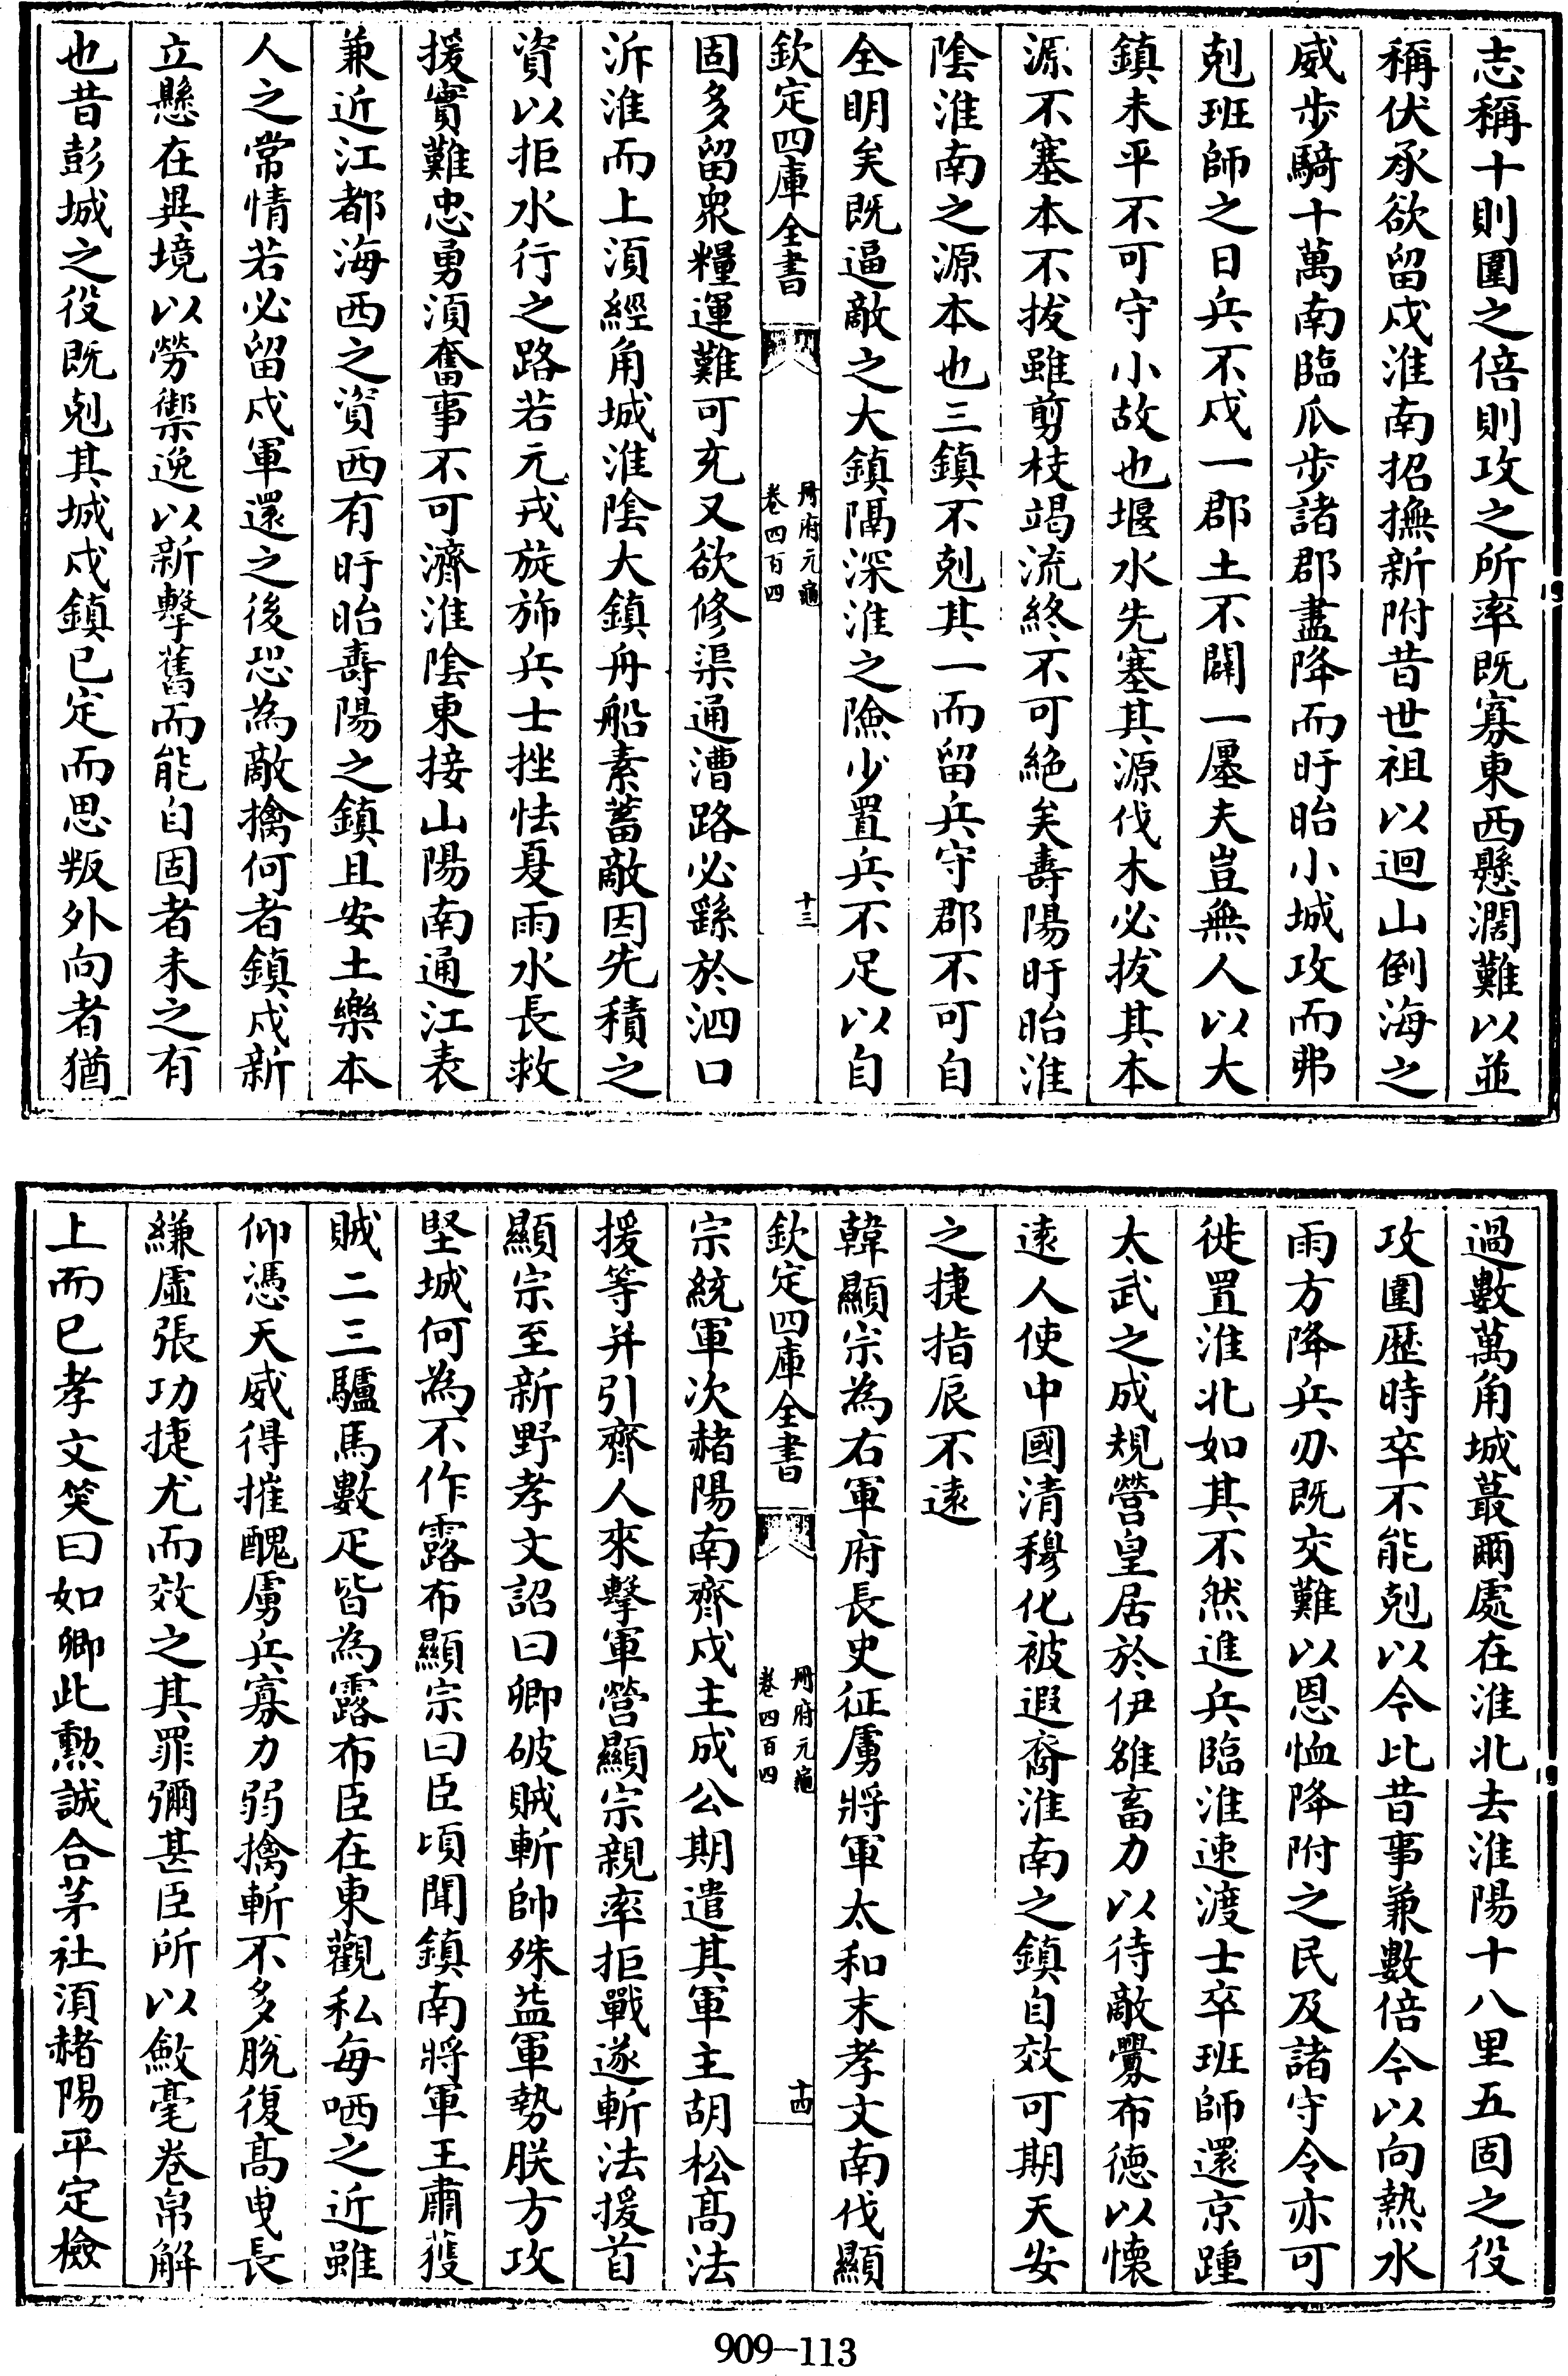 志稱十則圍之倍則攻之所率既寡東西懸濶難以並
稱伏承欲留戍淮南招撫新附昔世祖以迴山倒海之
威步騎十萬南臨瓜步諸郡盡降而盱眙小城攻而弗
剋班師之日兵不戍一郡土不闢一廛夫豈無人以大
鎮未平不可守小故也堰水先塞其源伐木必拔其本
源不塞本不拔雖剪枝竭流終不可絶矣壽陽盱眙淮
陰淮南之源本也三鎮不剋其一而留兵守郡不可自
全明矣既逼敵之大鎮隔深淮之險少置兵不足以自
欽定四庫全書
冊府元龜
卷四百四
十三
固多留衆糧運難可充又欲修渠通漕路必繇於泗口
泝淮而上湏經角城淮陰大鎮舟船素蓄敵因先積之
資以拒水行之路若元戎旋斾兵士挫怯夏雨水長救
援實難忠勇湏奮事不可濟淮陰東接山陽南通江表
兼近江都海西之資西有盱眙壽陽之鎮且安土樂本
人之常情若必留戍軍還之後恐為敵擒何者鎮戍新
立懸在異境以勞禦逸以新擊舊而能自固者未之有
也昔彭城之役既剋其城戍鎮已定而思叛外向者猶
過數萬角城蕞爾處在淮北去淮陽十八里五固之役
攻圍歷時卒不能剋以今比昔事兼數倍今以向熱水
雨方降兵刃既交難以恩恤降附之民及諸守令亦可
徙置淮北如其不然進兵臨淮速渡士卒班師還京踵
太武之成規營皇居於伊雒畜力以待敵釁布德以懷
遠人使中國清穆化被遐裔淮南之鎮自效可期天安
之捷指辰不遠
韓顯宗為右軍府長史征虜將軍太和末孝文南伐顯
欽定四庫全書
冊府元龜
卷四百四
十四
宗統軍次赭陽南齊戍主成公期遣其軍主胡松髙法
援等并引齊人來擊軍營顯宗親率拒戰遂斬法援首
顯宗至新野孝文詔曰卿破賊斬帥殊益軍勢朕方攻
堅城何為不作露布顯宗曰臣頃聞鎮南將軍王肅獲
賊二三驢馬數疋皆為露布臣在東觀私每哂之近雖
仰憑天威得摧醜虜兵寡力弱擒斬不多脫復髙曵長
縑虛張功捷尤而效之其罪彌甚臣所以斂毫卷帛解
上而已孝文笑曰如卿此勲誠合茅社湏赭陽平定檢
909-113